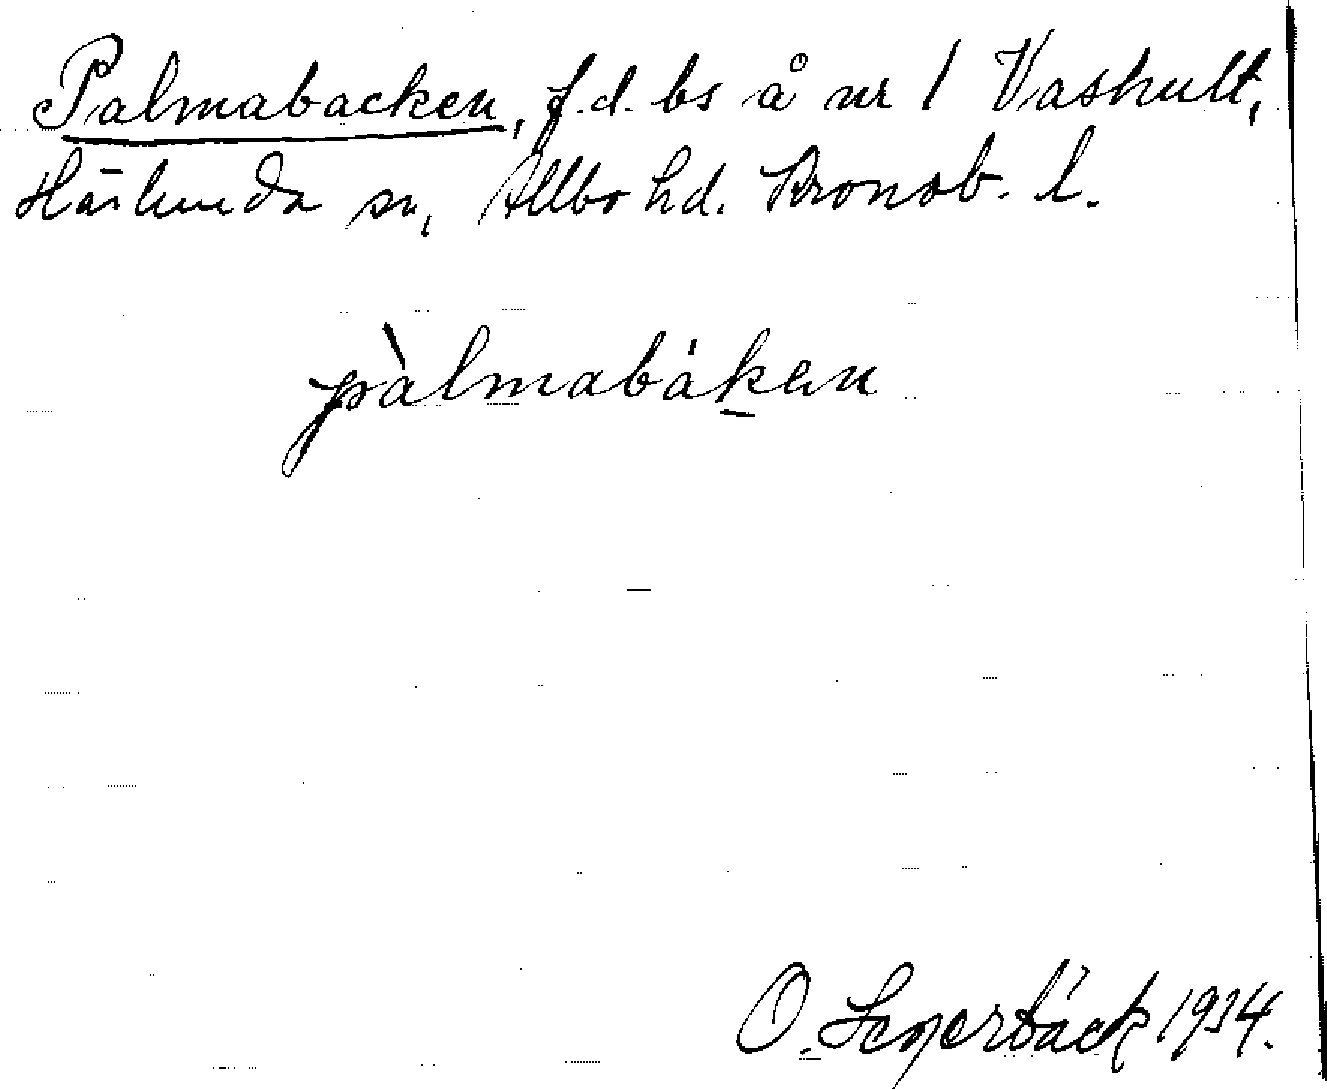 Palmabacken, f.d. bs å nr 1 Vashult,
Härlunda sn, Allbo hd. Kronob. l.
pàlmabáken
O. Segerbäck 1934.